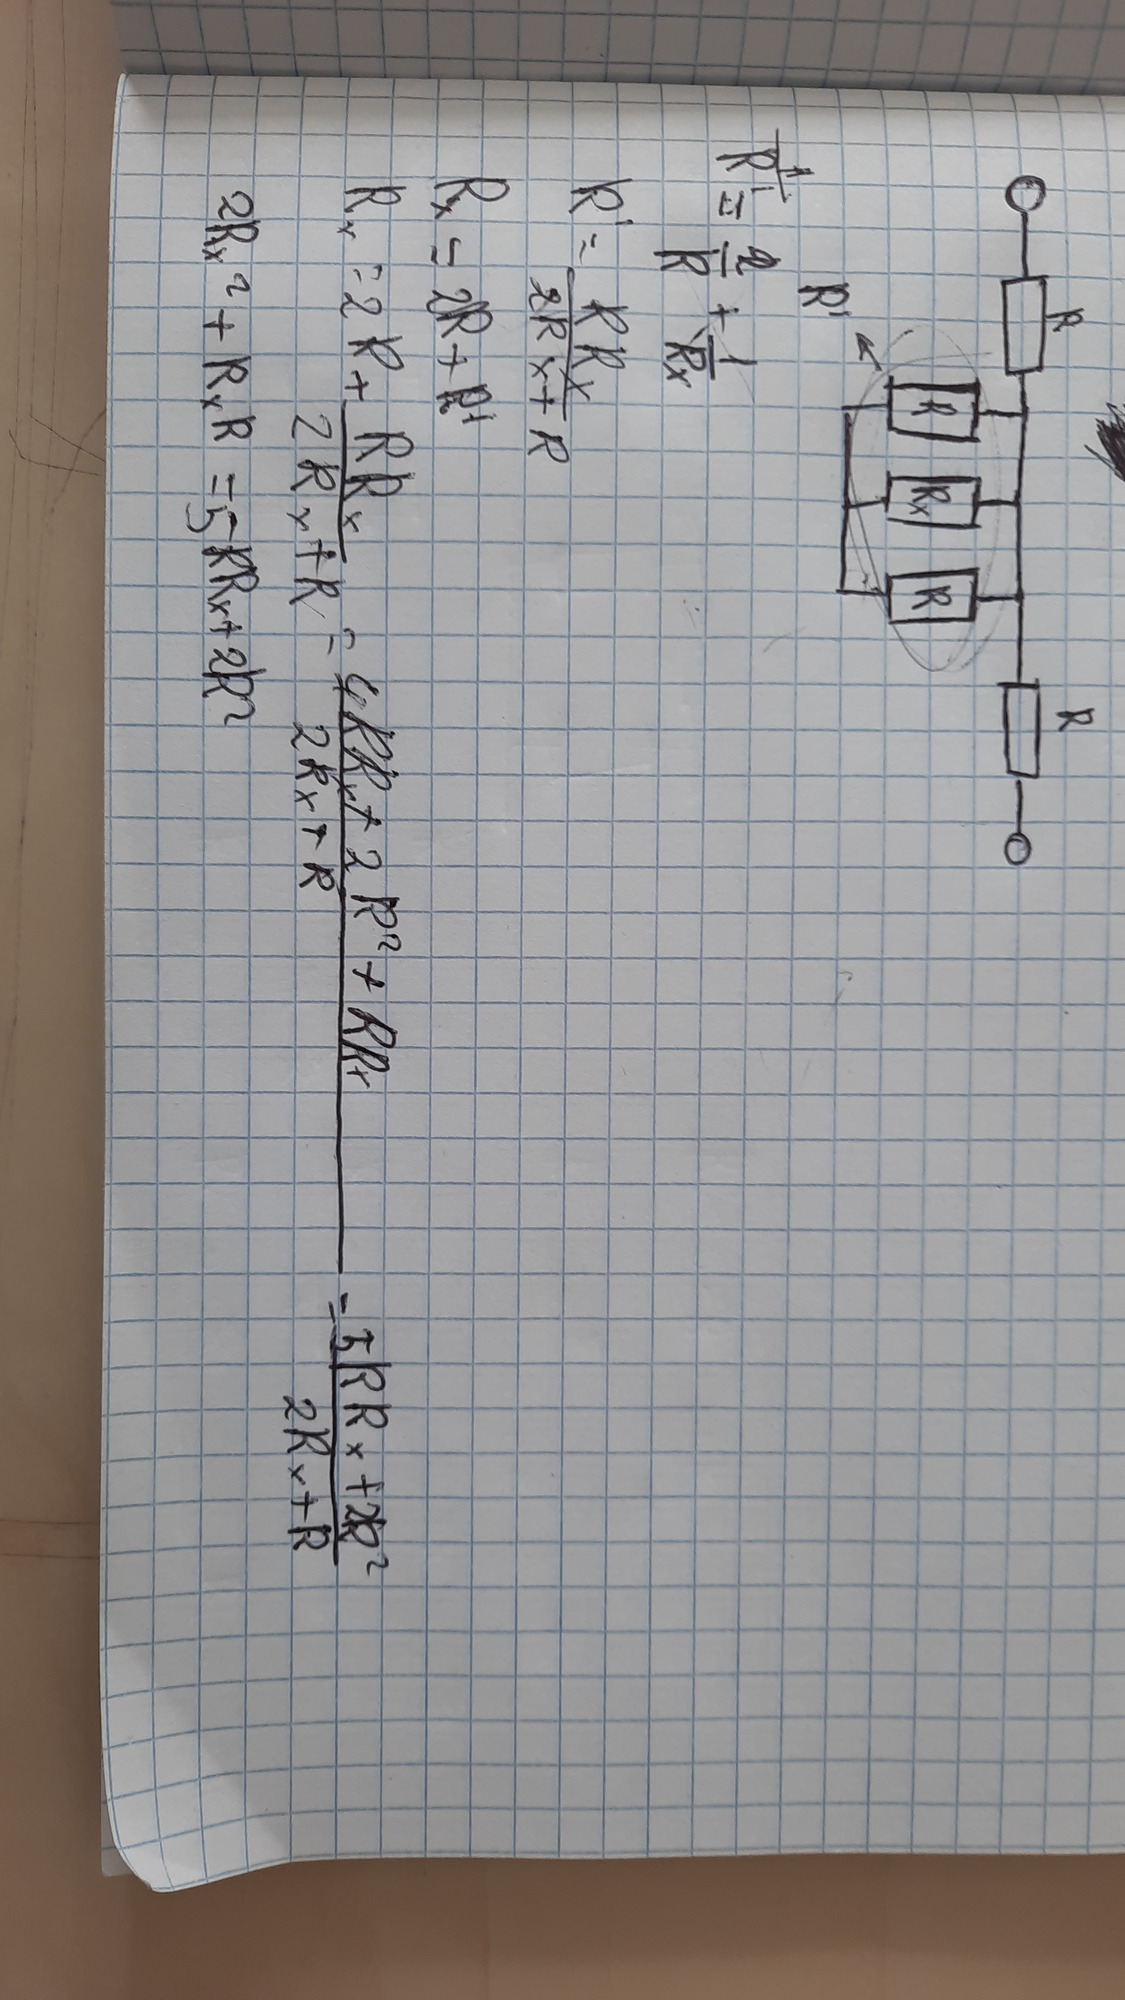 R R
R Rx R
R'
1/R' = 2/R + 1/Rx
R' = RRx/(2Rx + R)
Rx = 2R + R'
Rx = 2R + RRx/(2Rx + R) = (4RRx + 2R² + RRx)/(2Rx + R) = (5RRx + 2R²)/(2Rx + R)
2Rx² + RxR = 5RRx + 2R²